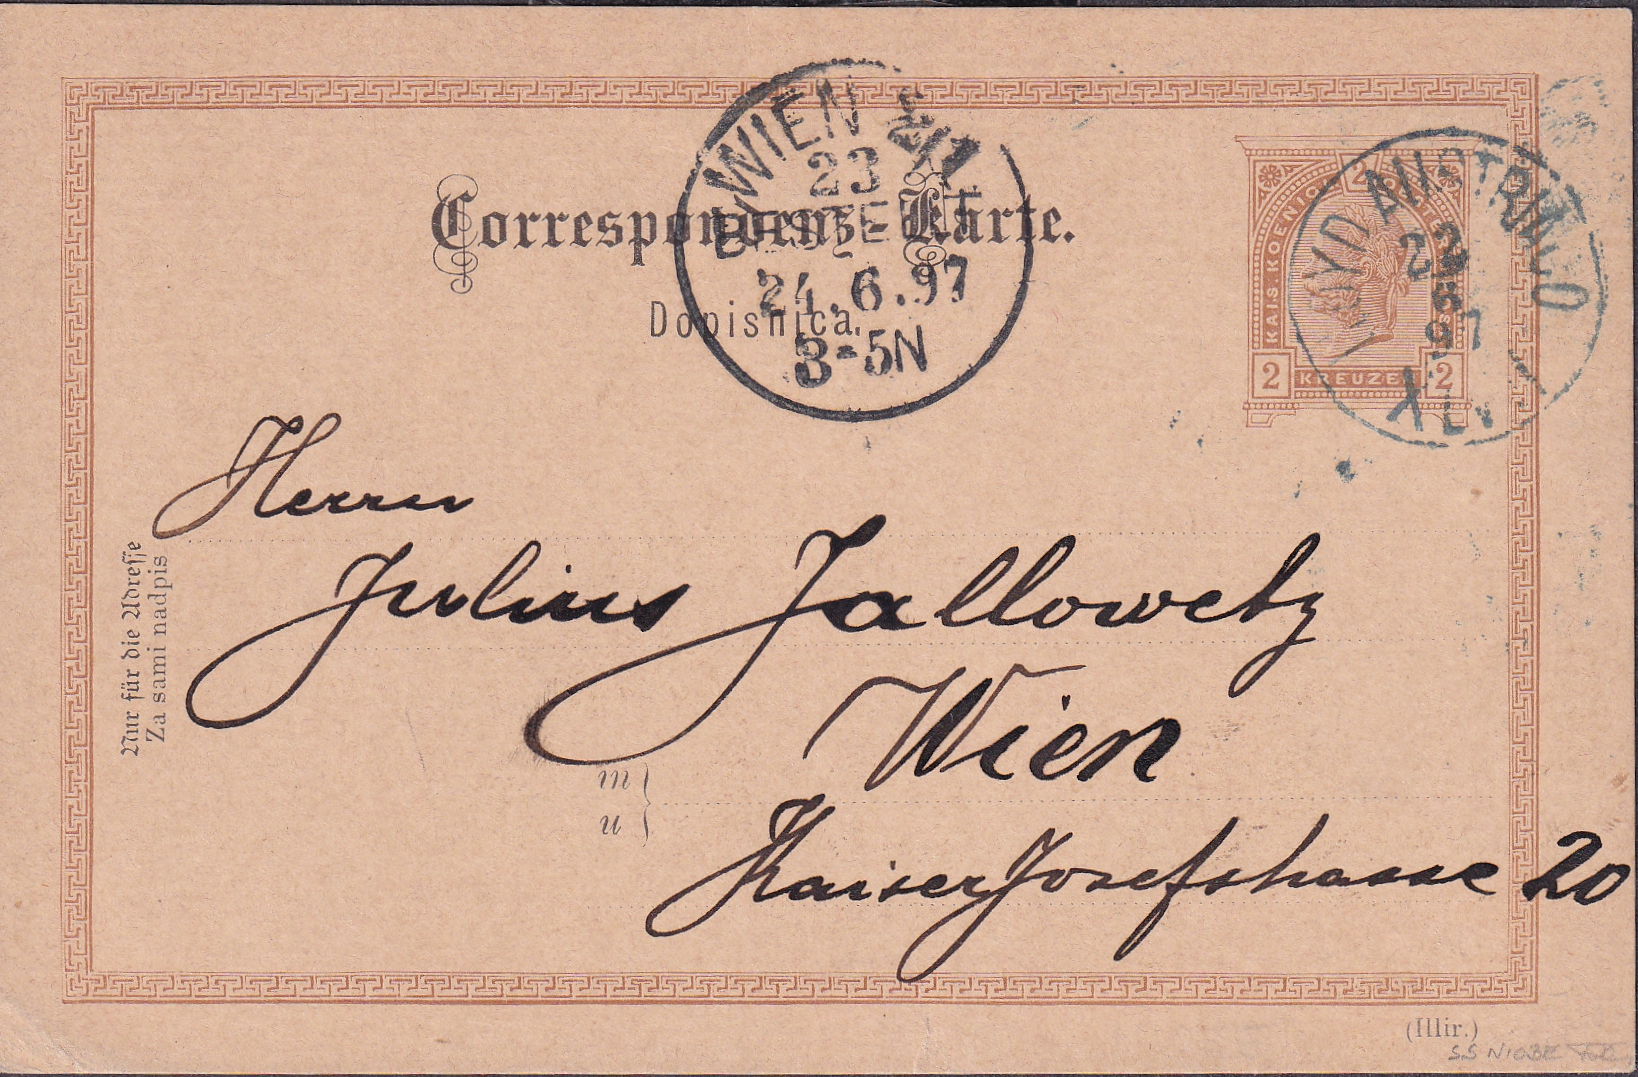 Correspondenz-Karte.
Dopisnica.
WIEN 2/1
23
BESTELLT
24.6.97
3-5N
KAIS. KOENIGL
2 KREUZER 2
LLOYD AUSTRIACO
22
6
97
XLV
Herrn
Julius Jallowetz
Wien
Kaiser Josefstrasse 20
Nur für die Adresse
Za sami nadpis
m
u
(Illir.)
SS NIOBE